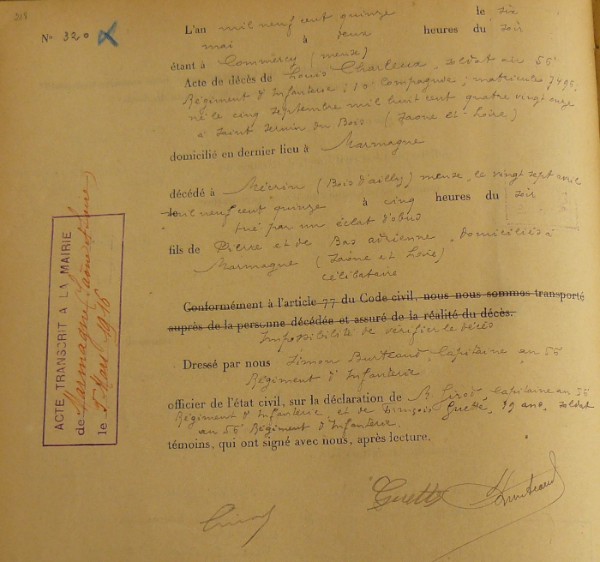 L'an mil neuf cent quinze le six
N° 320
mai à deux heures du soir
étant à Commercy (meuse)
Acte de décès de Louis Charleux, soldat au 56e
Régiment d'Infanterie, 10e Compagnie, matricule 7495,
né le cinq septembre mil huit cent quatre vingt onze
à Saint Sernin du Bois (Saone et Loire)
domicilié en dernier lieu à Marmagne
décédé à Mécrin (Bois d'ailly) meuse, le vingt sept avril
mil neuf cent quinze à cinq heures du soir
tué par un éclat d'obus
fils de Pierre et de Bas adrienne, domiciliés à
Marmagne (Saône et Loire)
célibataire
Conformément à l'article 77 du Code civil, nous nous sommes transporté
auprès de la personne décédée et assuré de la réalité du décès.
Impossibilité de vérifier le décès
Dressé par nous Simon Capitaine au 56
Régiment d'Infanterie
officier de l'état civil, sur la déclaration de Capitaine au 56
Régiment d'Infanterie et de François Guette, ans, soldat
au 56 Régiment d'Infanterie.
témoins, qui ont signé avec nous, après lecture.
Guette
ACTE TRANSCRIT A LA MAIRIE
de Marmagne Saône et Loire
le 5 1916